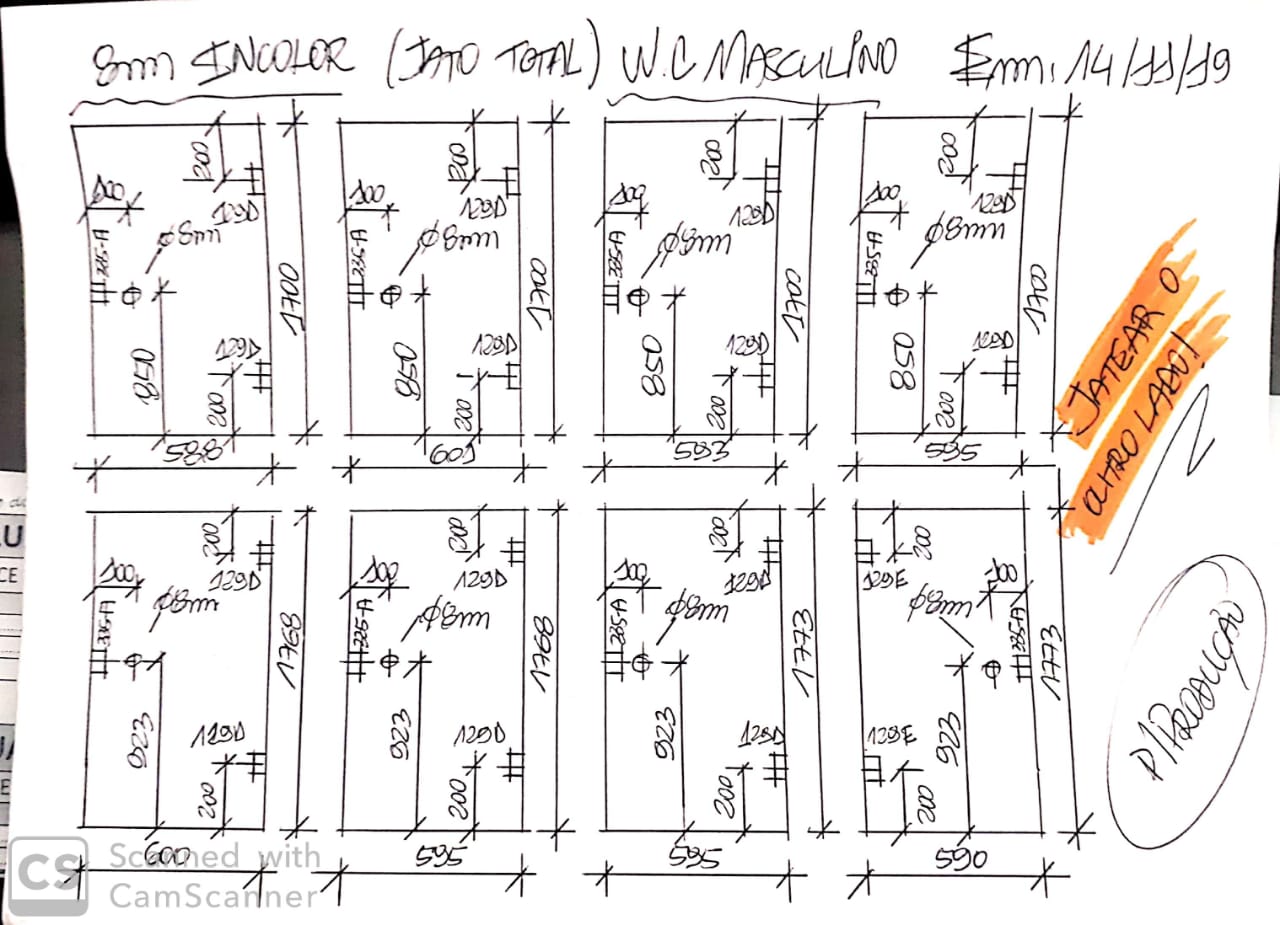 8mm INCOLOR (JATO TOTAL) W.C MASCULINO Emm. 14/11/19
200
100
129D
Ø8mm
335-A
1700
850
129D
200
588
200
100
129D
Ø8mm
335-A
1700
850
129D
200
601
200
100
129D
Ø8mm
335-A
1700
850
129D
200
593
200
100
129D
Ø8mm
335-A
1700
850
129D
200
595
JATEAR O
OUTRO LADO!
200
100
129D
Ø8mm
335-A
1768
923
129D
200
600
200
100
129D
Ø8mm
335-A
1768
923
129D
200
595
200
100
129D
Ø8mm
335-A
1773
923
129D
200
595
200
129E
100
Ø8mm
335-A
1773
923
129E
200
590
P/PRODUÇÃO
CS Scanned with
CamScanner